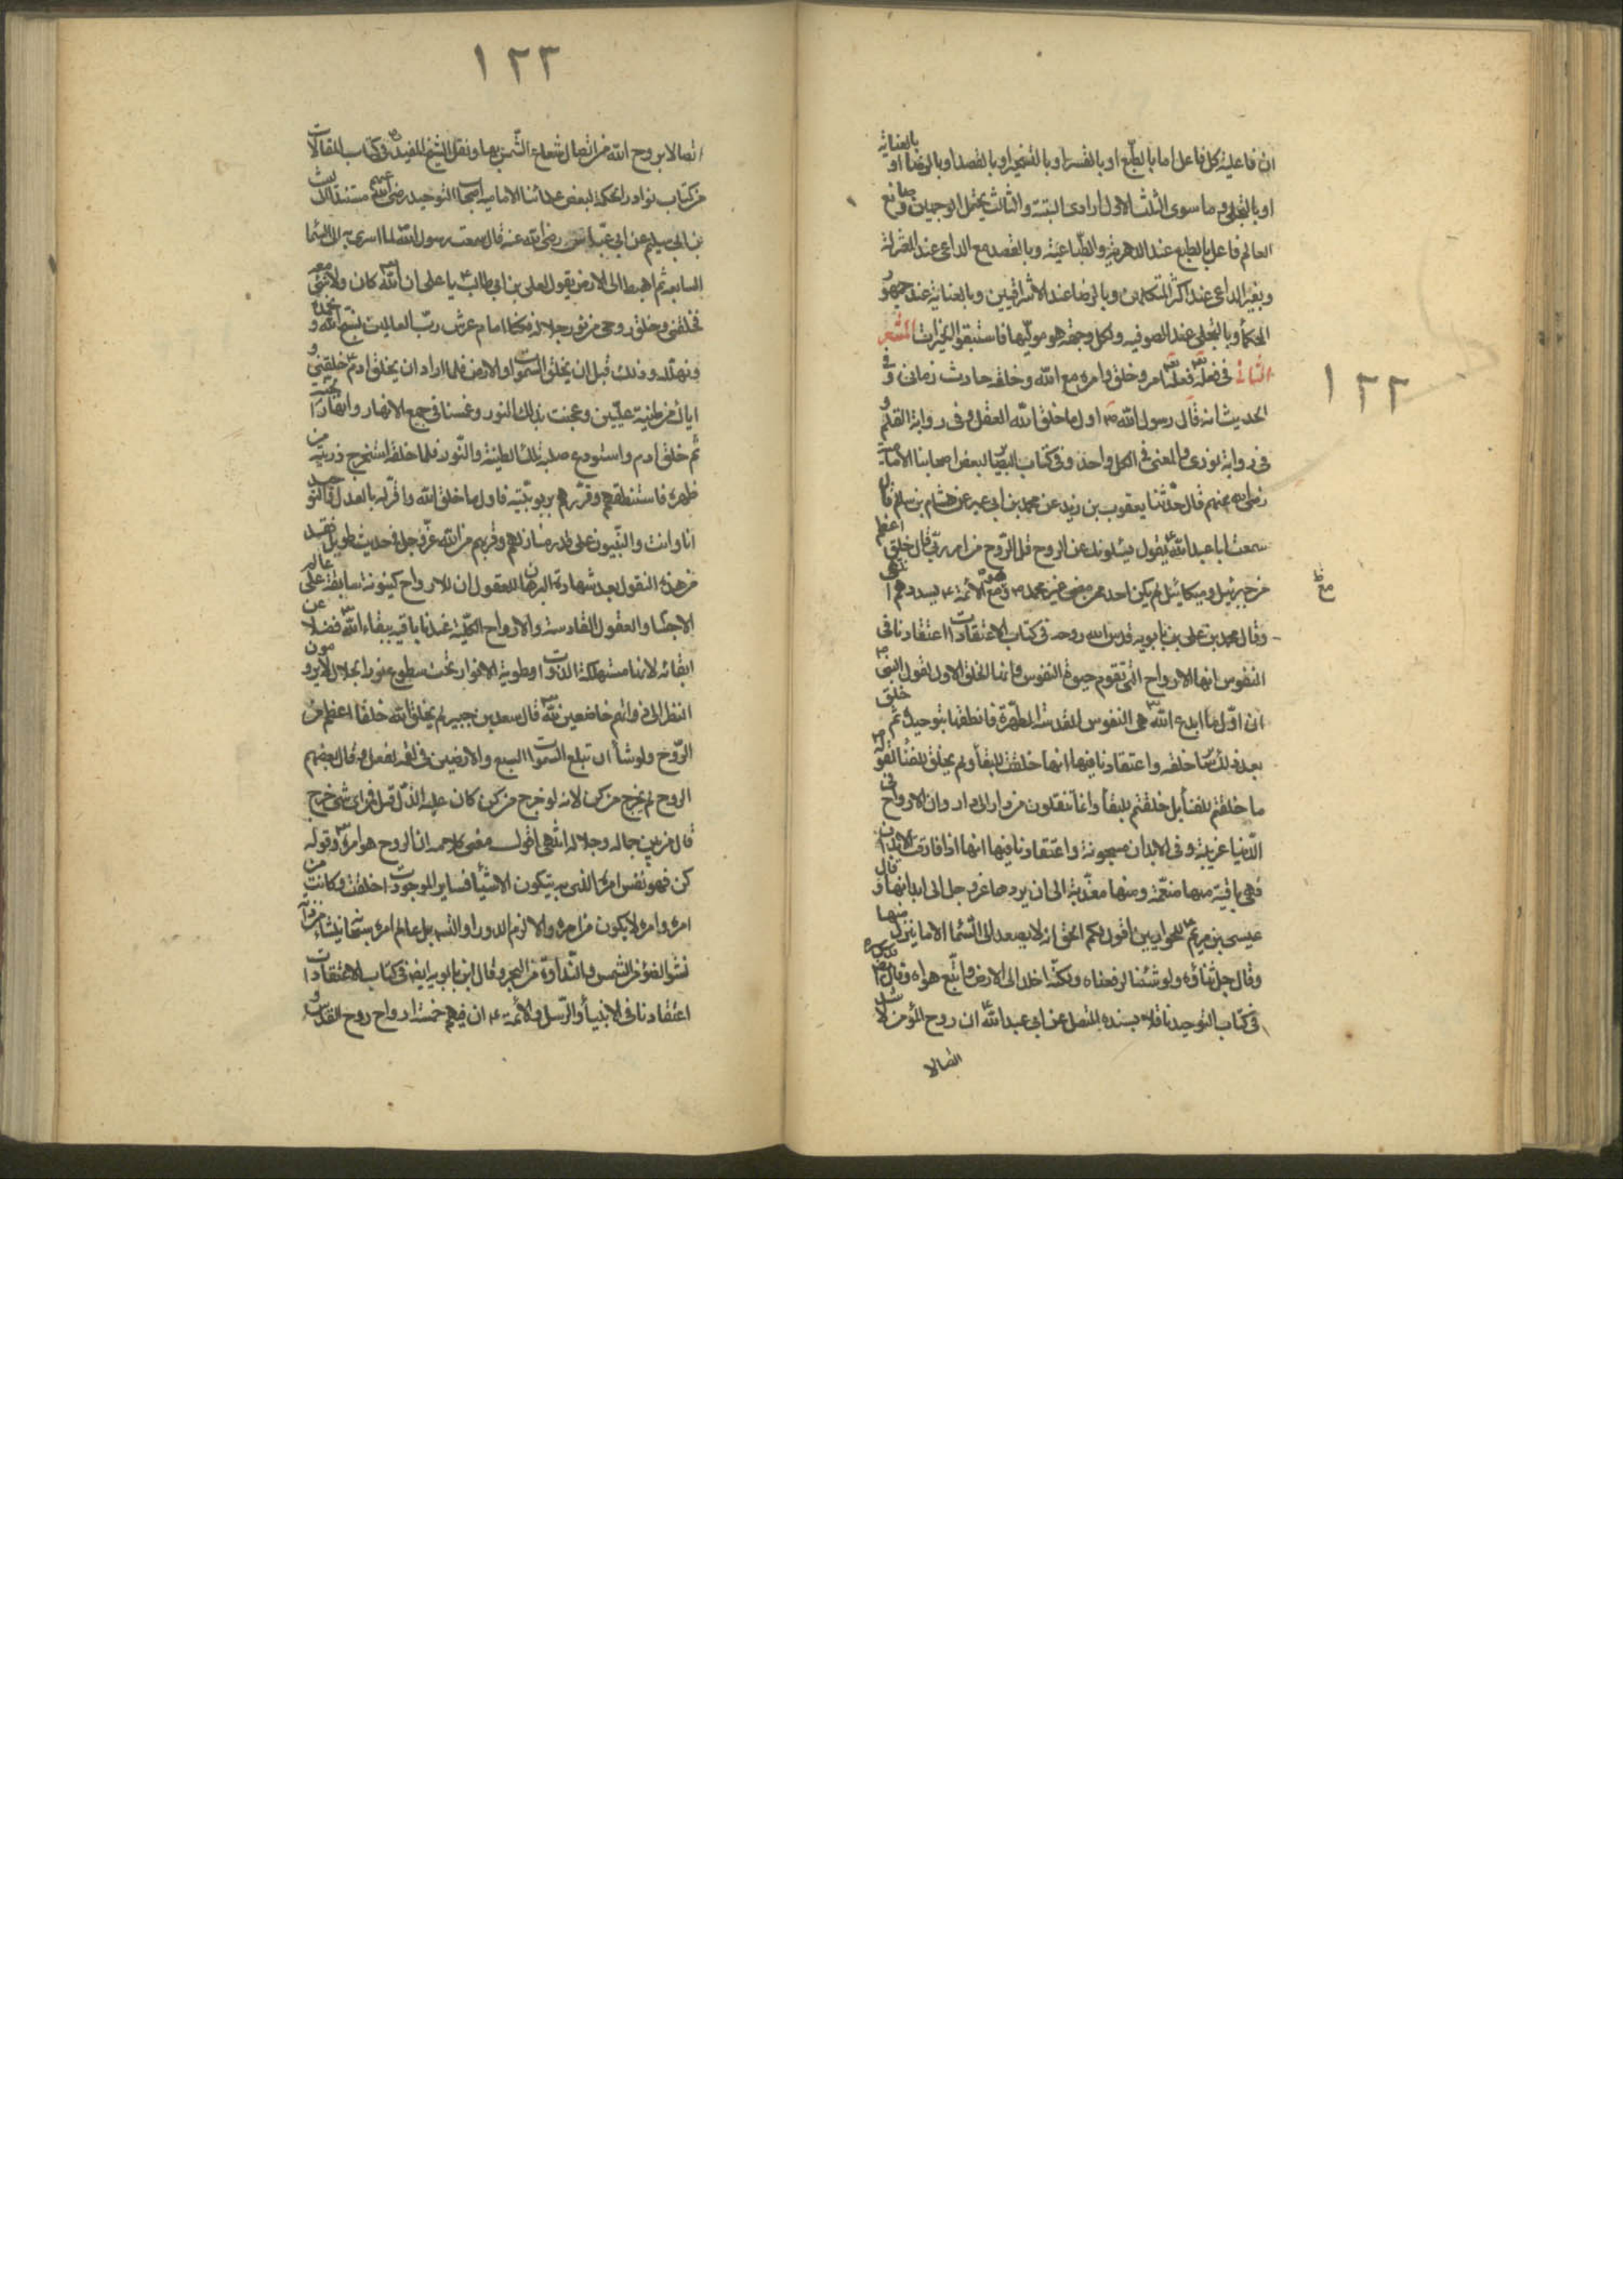 ١٢٢
ان فاعلية كل فاعل اما بالطبع او بالقسر او بالتسخير او بالقصد او بالرضا او بالعناية
او بالتجلي و ما سوى الثلث الاول ارادى البتة والثالث يحتمل الوجهين و صانع
العالم فاعل بالطبع عند الدهرية والطباعية وبالقصد مع الداعى عند المعتزلة
وبغير الداعى عند اكثر المتكلمين وبالرضا عند الاشراقيين وبالعناية عند جمهور
الحكمأ وبالتجلى عند الصوفيه ولكل وجهة هو موليها فاستبقوا الخيرات المشعر
الثانى فى فعله تع فعله تع امر وخلق وامره مع الله وخلقه حادث زمانى و فى
الحديث انه قال رسول الله ص اول ما خلق الله العقل و فى رواية القلم و
فى رواية نورى والمعنى فى الكل واحد وفى كتاب البصائر لبعض اصحابنا الامامية
رضى الله عنهم قال حدثنا يعقوب بن زيد عن محمد بن ابى عمير عن هشام بن سالم قال
سمعت ابا عبد الله ع يقول يسئلونك عن الروح قل الروح من امر ربى قال خلق اعظم
من جبرئيل وميكائيل لم يكن احد ممن مضى غير محمد ص وهو مع الائمة ع يسددهم انتهى
وقال محمد بن على بن بابويه قدس الله روحه فى كتاب الاعتقادات اعتقادنا فى
النفوس انها الارواح التى تقوم حيوة النفوس وانها الخلق الاول لقول النبى ص
ان اول ما ابدع الله هى النفوس المقدسة المطهرة فانطقها بتوحيده ثم خلق
بعد ذلك سائر خلقه واعتقادنا فيها انها خلقت للبقأ ولم يخلق للفنا لقوله ص
ما خلقتم للفنأ بل خلقتم للبقأ وانما تنقلون من دار الى دار وان الارواح فى
الدنيا غريبة وفى الابدان مسجونة واعتقادنا فيها انها اذا فارقت الابدان
فهى باقية منها منعمة ومنها معذبة الى ان يردها عز وجل الى ابدانها و قال
عيسى بن مريم ع للحواريين اقول لكم الحق انه لا يصعد الى السمأ الا ما ينزل منها
وقال جل ثناؤه ولو شئنا لرفعناه ولكنه اخلد الى الارض واتبع هواه وقال
فى كتاب التوحيد ناقلا بسنده المتصل عن ابى عبد الله ع ان روح المؤمن لاشد
اتصالا
١٢٣
اتصالا بروح الله من اتصال شعاع الشمس بها ونقل الشيخ المفيد فى كتاب المقالات
من كتاب نوادر الحكمة لبعض علمائنا الامامية اصحاب التوحيد رضى الله عنهم مستندا الى ليث
بن ابى سليم عن ابى عباس رضى الله عنه قال سمعت رسول الله لما اسرى به الى السما
السابعه ثم اهبط الى الارض يقول لعلى بن ابى طالب ع يا على ان الله كان ولا شئ معه
فخلقنى وخلق روحى من نور جلاله فكنا امام عرش رب العالمين نسبح الله و نحمده
ونهلله وذلك قبل ان يخلق السموات والارض فلما اراد ان يخلق ادم ع خلقنى و
اياك من طينة عليين وعجنت بذلك النور وغمسنا فى جميع الانهار وانهار الجنة
ثم خلق ادم واستودع صلبه تلك الطينة والنور فلما خلقه استخرج ذريته من
ظهره فاستنطقهم وقررهم بربوبيته فاول ما خلق الله واقر له بالعدل والتوحيد
انا وانت والنبيون على قدر منازلهم وقربهم من الله عز وجل فى حديث طويل فقد
من هذه النقول بعد شهادة البرهان للعقول ان للارواح كينونة سابقة على عالم
الاجسا والعقول القادسة والارواح الكلية عندنا باقية ببقاء الله فضلا عن
ابقائه لانها مستهلكة الذوات مطوية الانوار تحت سطوع نور الجلال لا يرومون
النظر الى ذواتهم خاضعين لله قال سعد بن جبير لم يخلق الله خلقا اعظم من
الروح ولو شأ ان تبلع السموات السبع والارضين فى لقمة لفعل وقال بعضهم
الروح لم يخرج من كن لانه لو خرج من كن كان عليه الذل قيل فمن اى شئ خرج
قال من بين جماله وجلاله انتهى اقول معنى كلامه ان الروح هو امره وقوله
كن فهو نفس امره الذى به يتكون الاشيأ فساير الموجودات خلقت وكانت من
امره وامره لا يكون من امره والا لزم الدور او التس بل عالم امره سبحانه ينشأ من ذاته
نشو الضؤ من الشمس والنداوة من البحر وقال ابن بابويه ايضا فى كتاب الاعتقادات
اعتقادنا فى الانبيأ والرسل والائمة ع ان فيهم خمسة ارواح روح القدس و